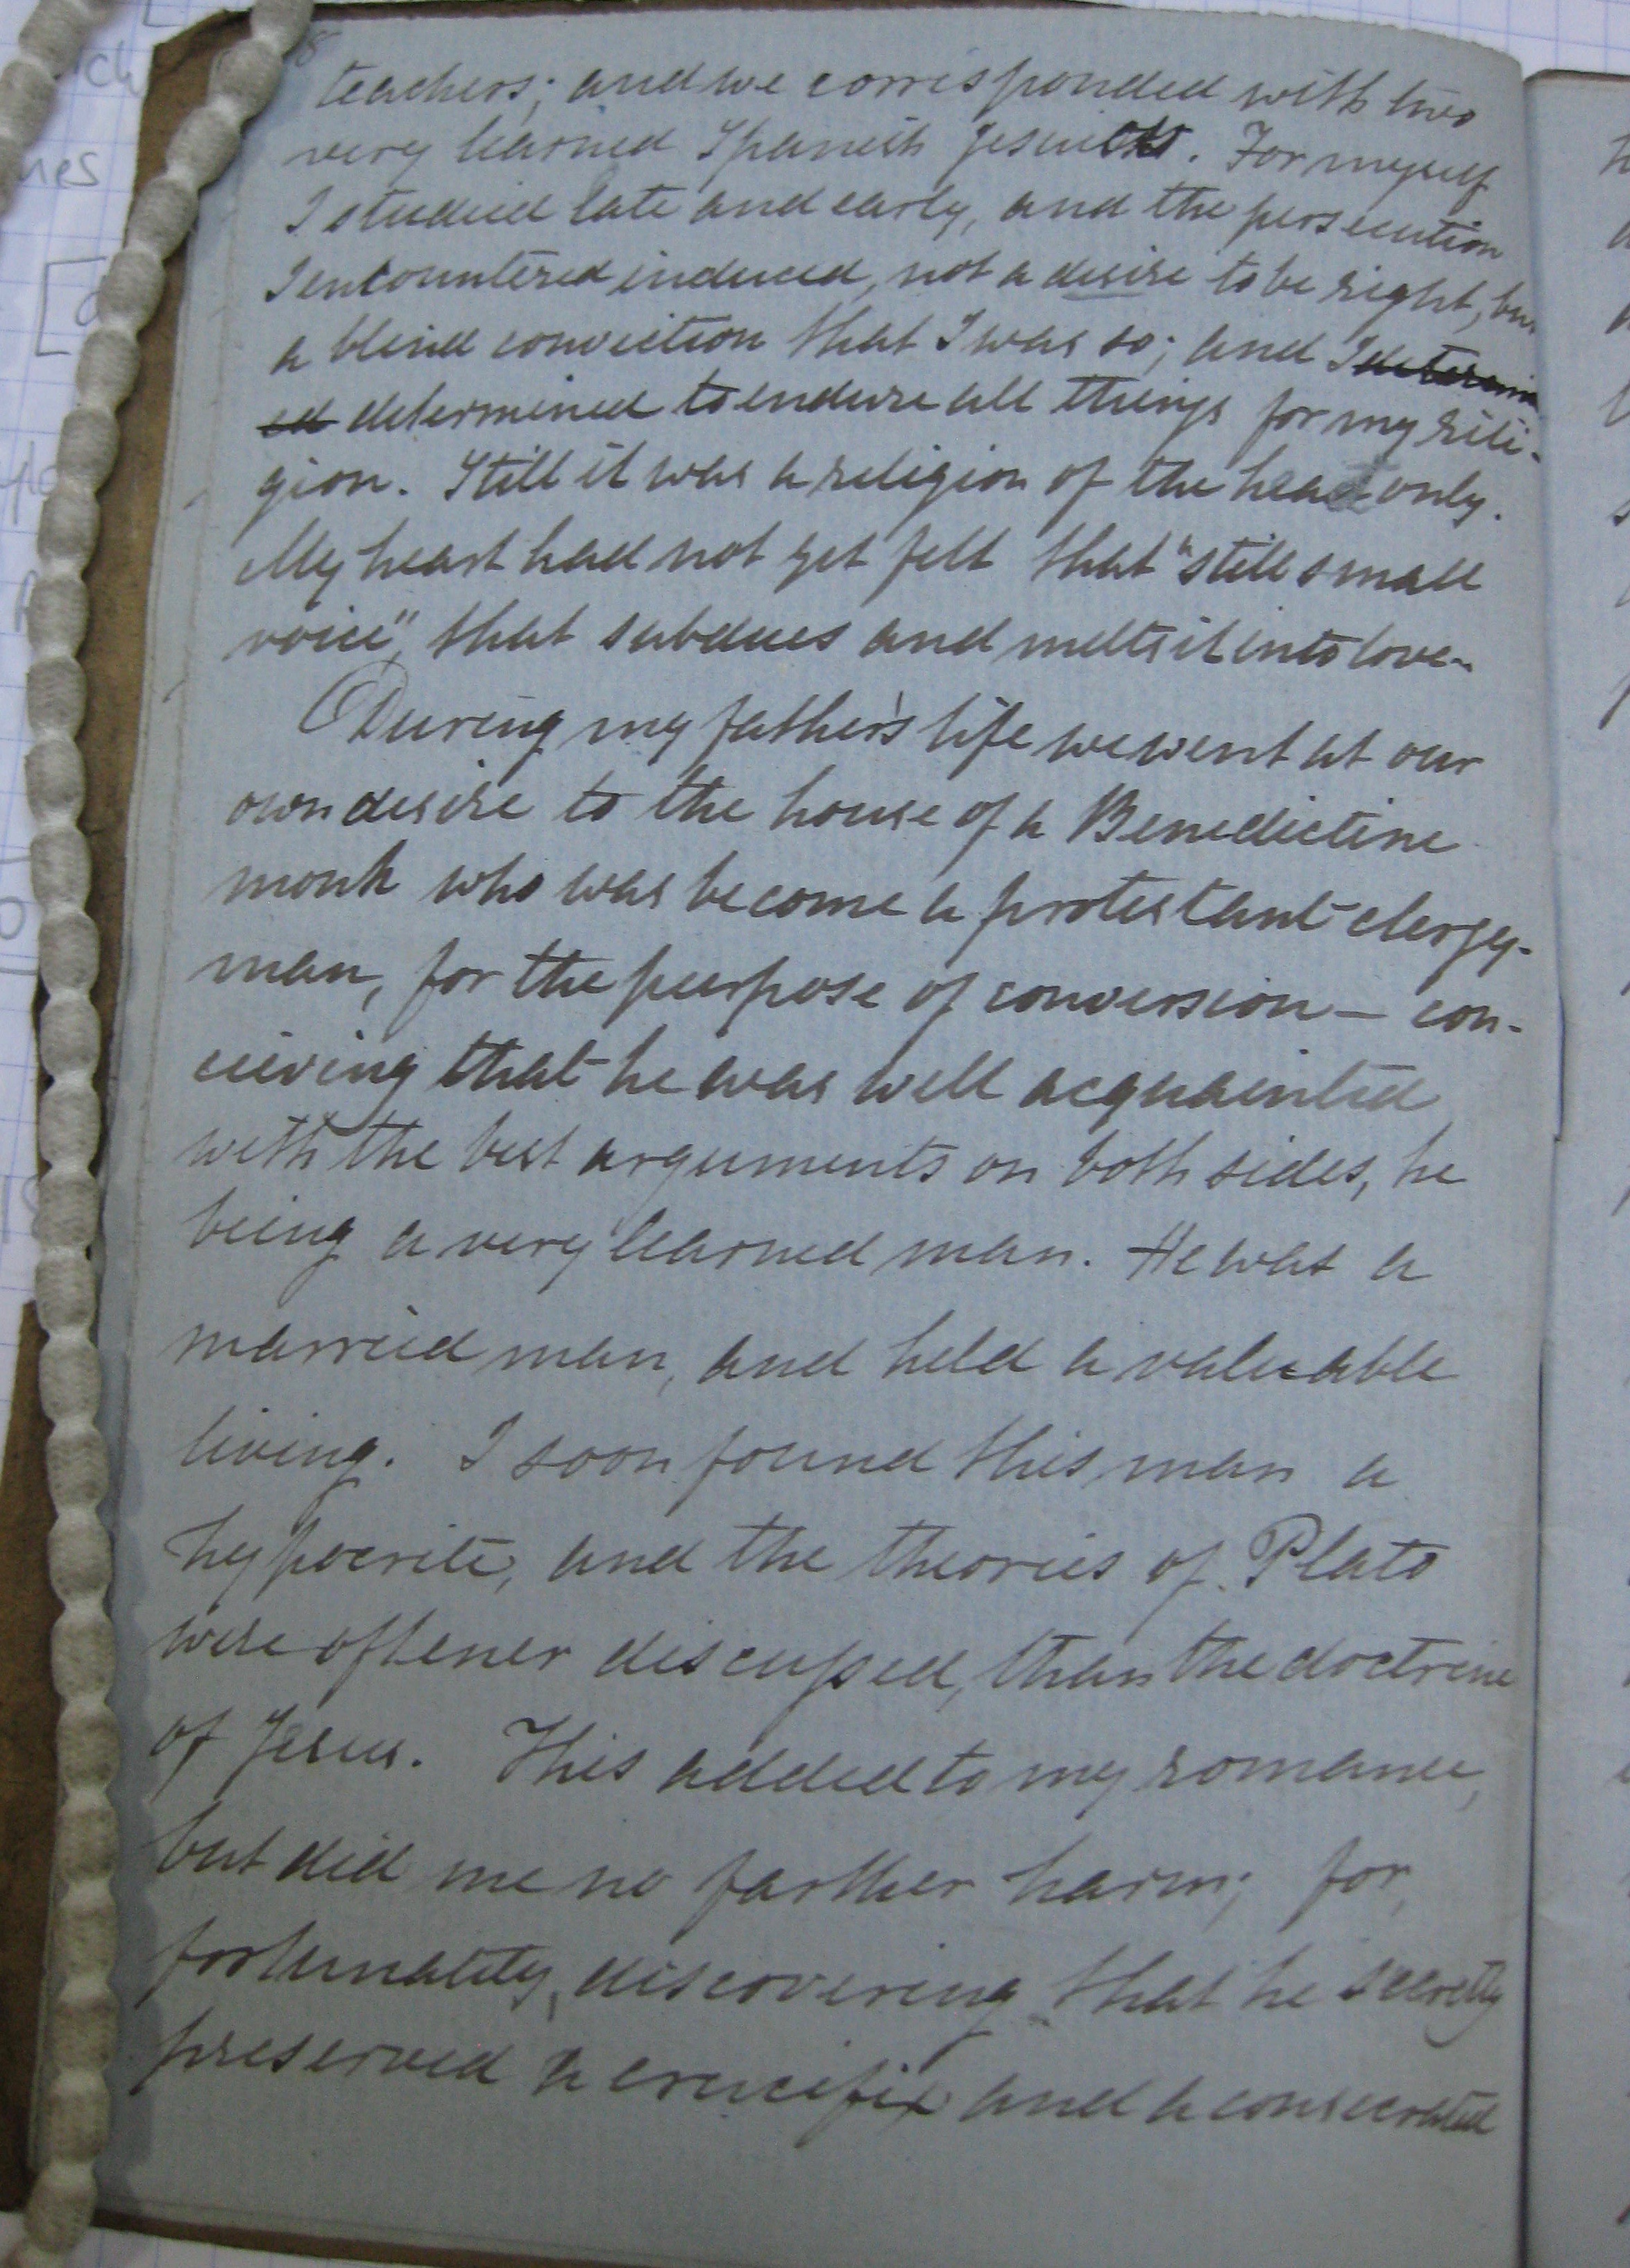 8
teachers; and we corresponded with two
very learned Spanish Jesuits. For myself
I studied late and early, and the persecution
I encountered induced, not a desire to be right, but
a blind conviction that I was so; and I determin
ed determined to endure all things for my reli-
gion. Still it was a religion of the head only.
My heart had not yet felt that "still small
voice", that subdues and melts it into love.
During my father's life we went at our
own desire to the house of a Benedictine
monk who was become a protestant clergy-
man, for the purpose of conversion — con-
ceiving that he was well acquainted
with the best arguments on both sides, he
being a very learned man. He was a
married man, and held a valuable
living. I soon found this man a
hypocrite, and the theories of Plato
were oftener discussed, than the doctrine
of Jesus. This added to my romance,
but did me no farther harm; for,
fortunately, discovering that he secretly
preserved a crucifix and a consecrated